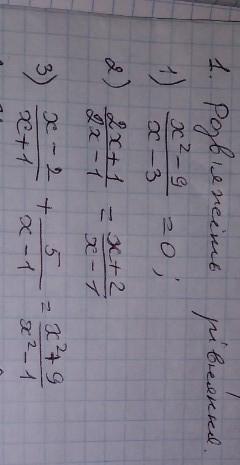 1. Розв'яжіть рівняння.
1) \frac{x^2-9}{x-3} = 0;
2) \frac{2x+1}{2x-1} = \frac{x+2}{x-1}
3) \frac{x-2}{x+1} + \frac{5}{x-1} = \frac{x^2+9}{x^2-1}